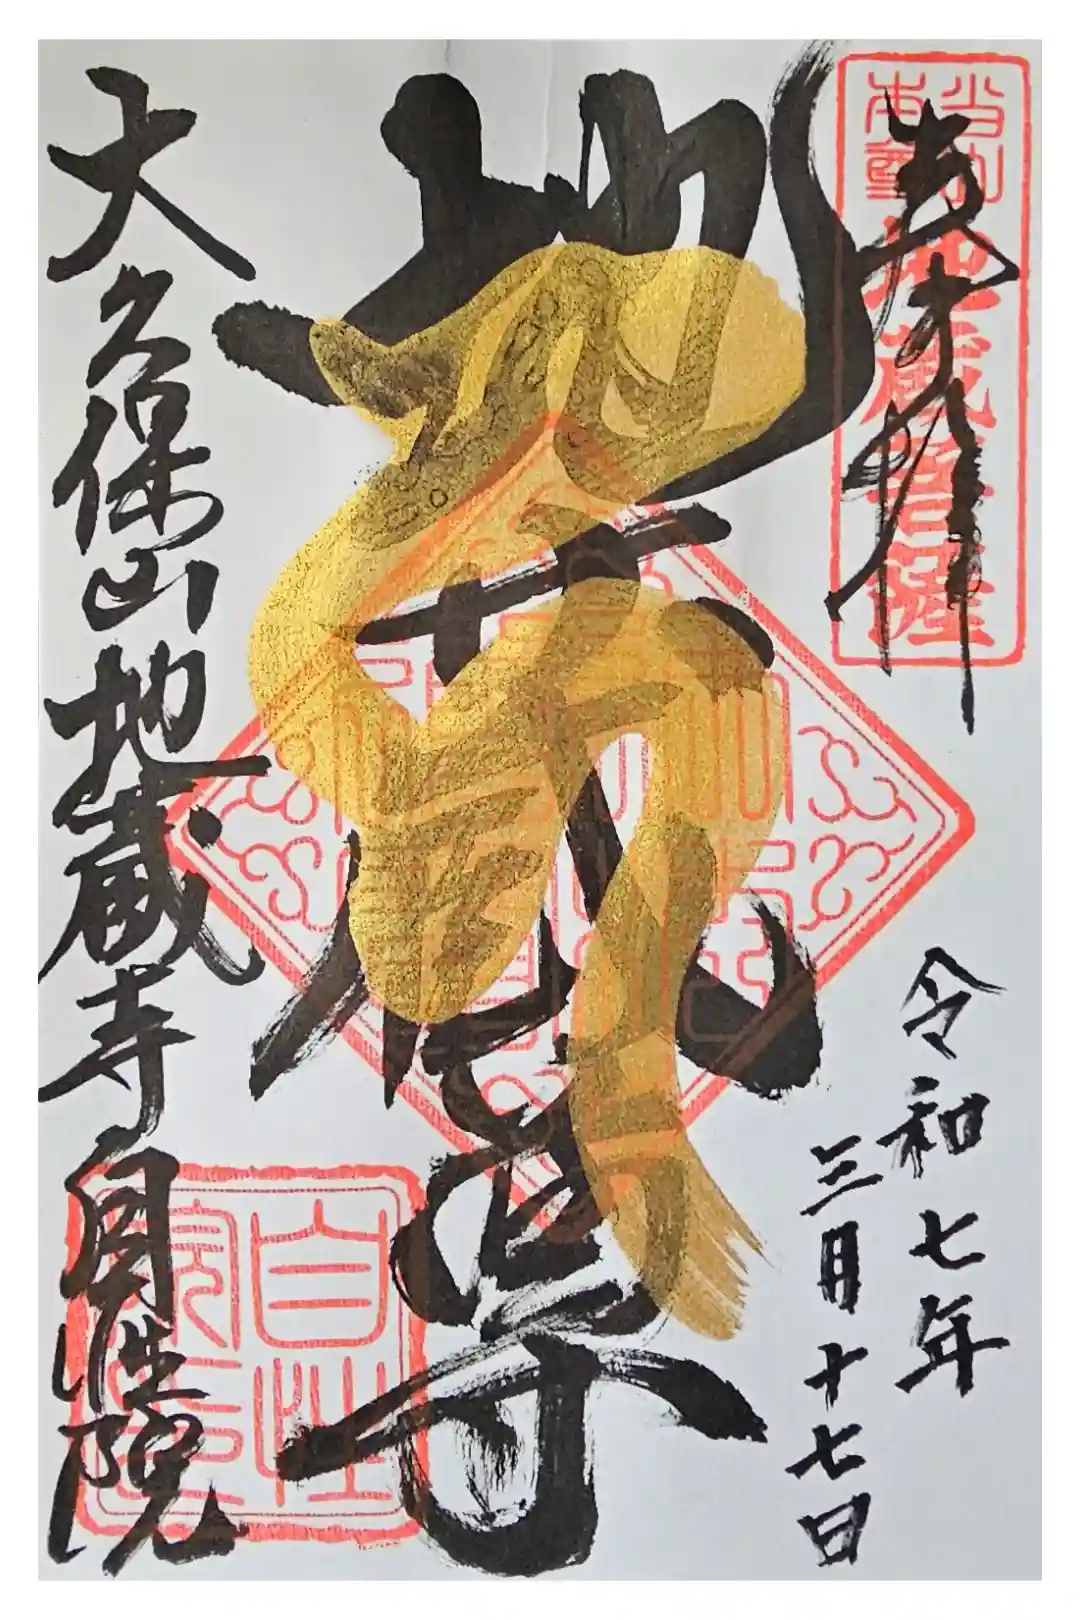 奉拝
当山
本尊
地蔵菩薩
令和七年
三月十七日
地蔵尊
大久保山地蔵寺自性院
自性
院